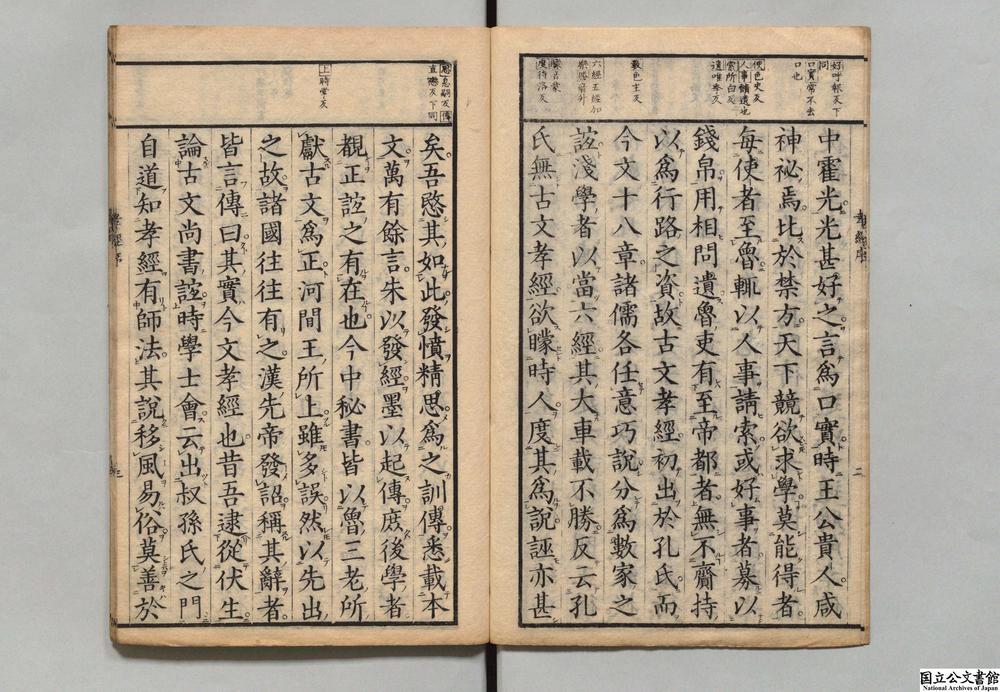 好呼報反下
同
口實常不去
口也
使色吏反
人事饋遺也
索所白反
遺唯季反
數色主反
六經五經加
度待洛反
中霍光光甚好之言爲口實時王公貴人咸
神祕焉比於禁方天下競欲求學莫能得者
每使者至魯輒以人事請索或好事者募以
錢帛用相問遺魯吏有至帝都者無不齎持
以爲行路之資故古文孝經初出於孔氏而
今文十八章諸儒各任意巧說分爲數家之
誼淺學者以當六經其大車載不勝反云孔
氏無古文孝經欲矇時人度其爲說誣亦甚
孝經序
二
直戀反下同
上時掌反
矣吾愍其如此發憤精思爲之訓傳悉載本
文萬有餘言朱以發經墨以起傳庶後學者
覩正誼之有在也今中祕書皆以魯三老所
獻古文爲正河間王所上雖多誤然以先出
之故諸國往往有之漢先帝發詔稱其辭者
皆言傳曰其實今文孝經也昔吾逮從伏生
論古文尚書誼時學士會云出叔孫氏之門
自道知孝經有師法其說移風易俗莫善於
孝經序
三
国立公文書館
National Archives of Japan